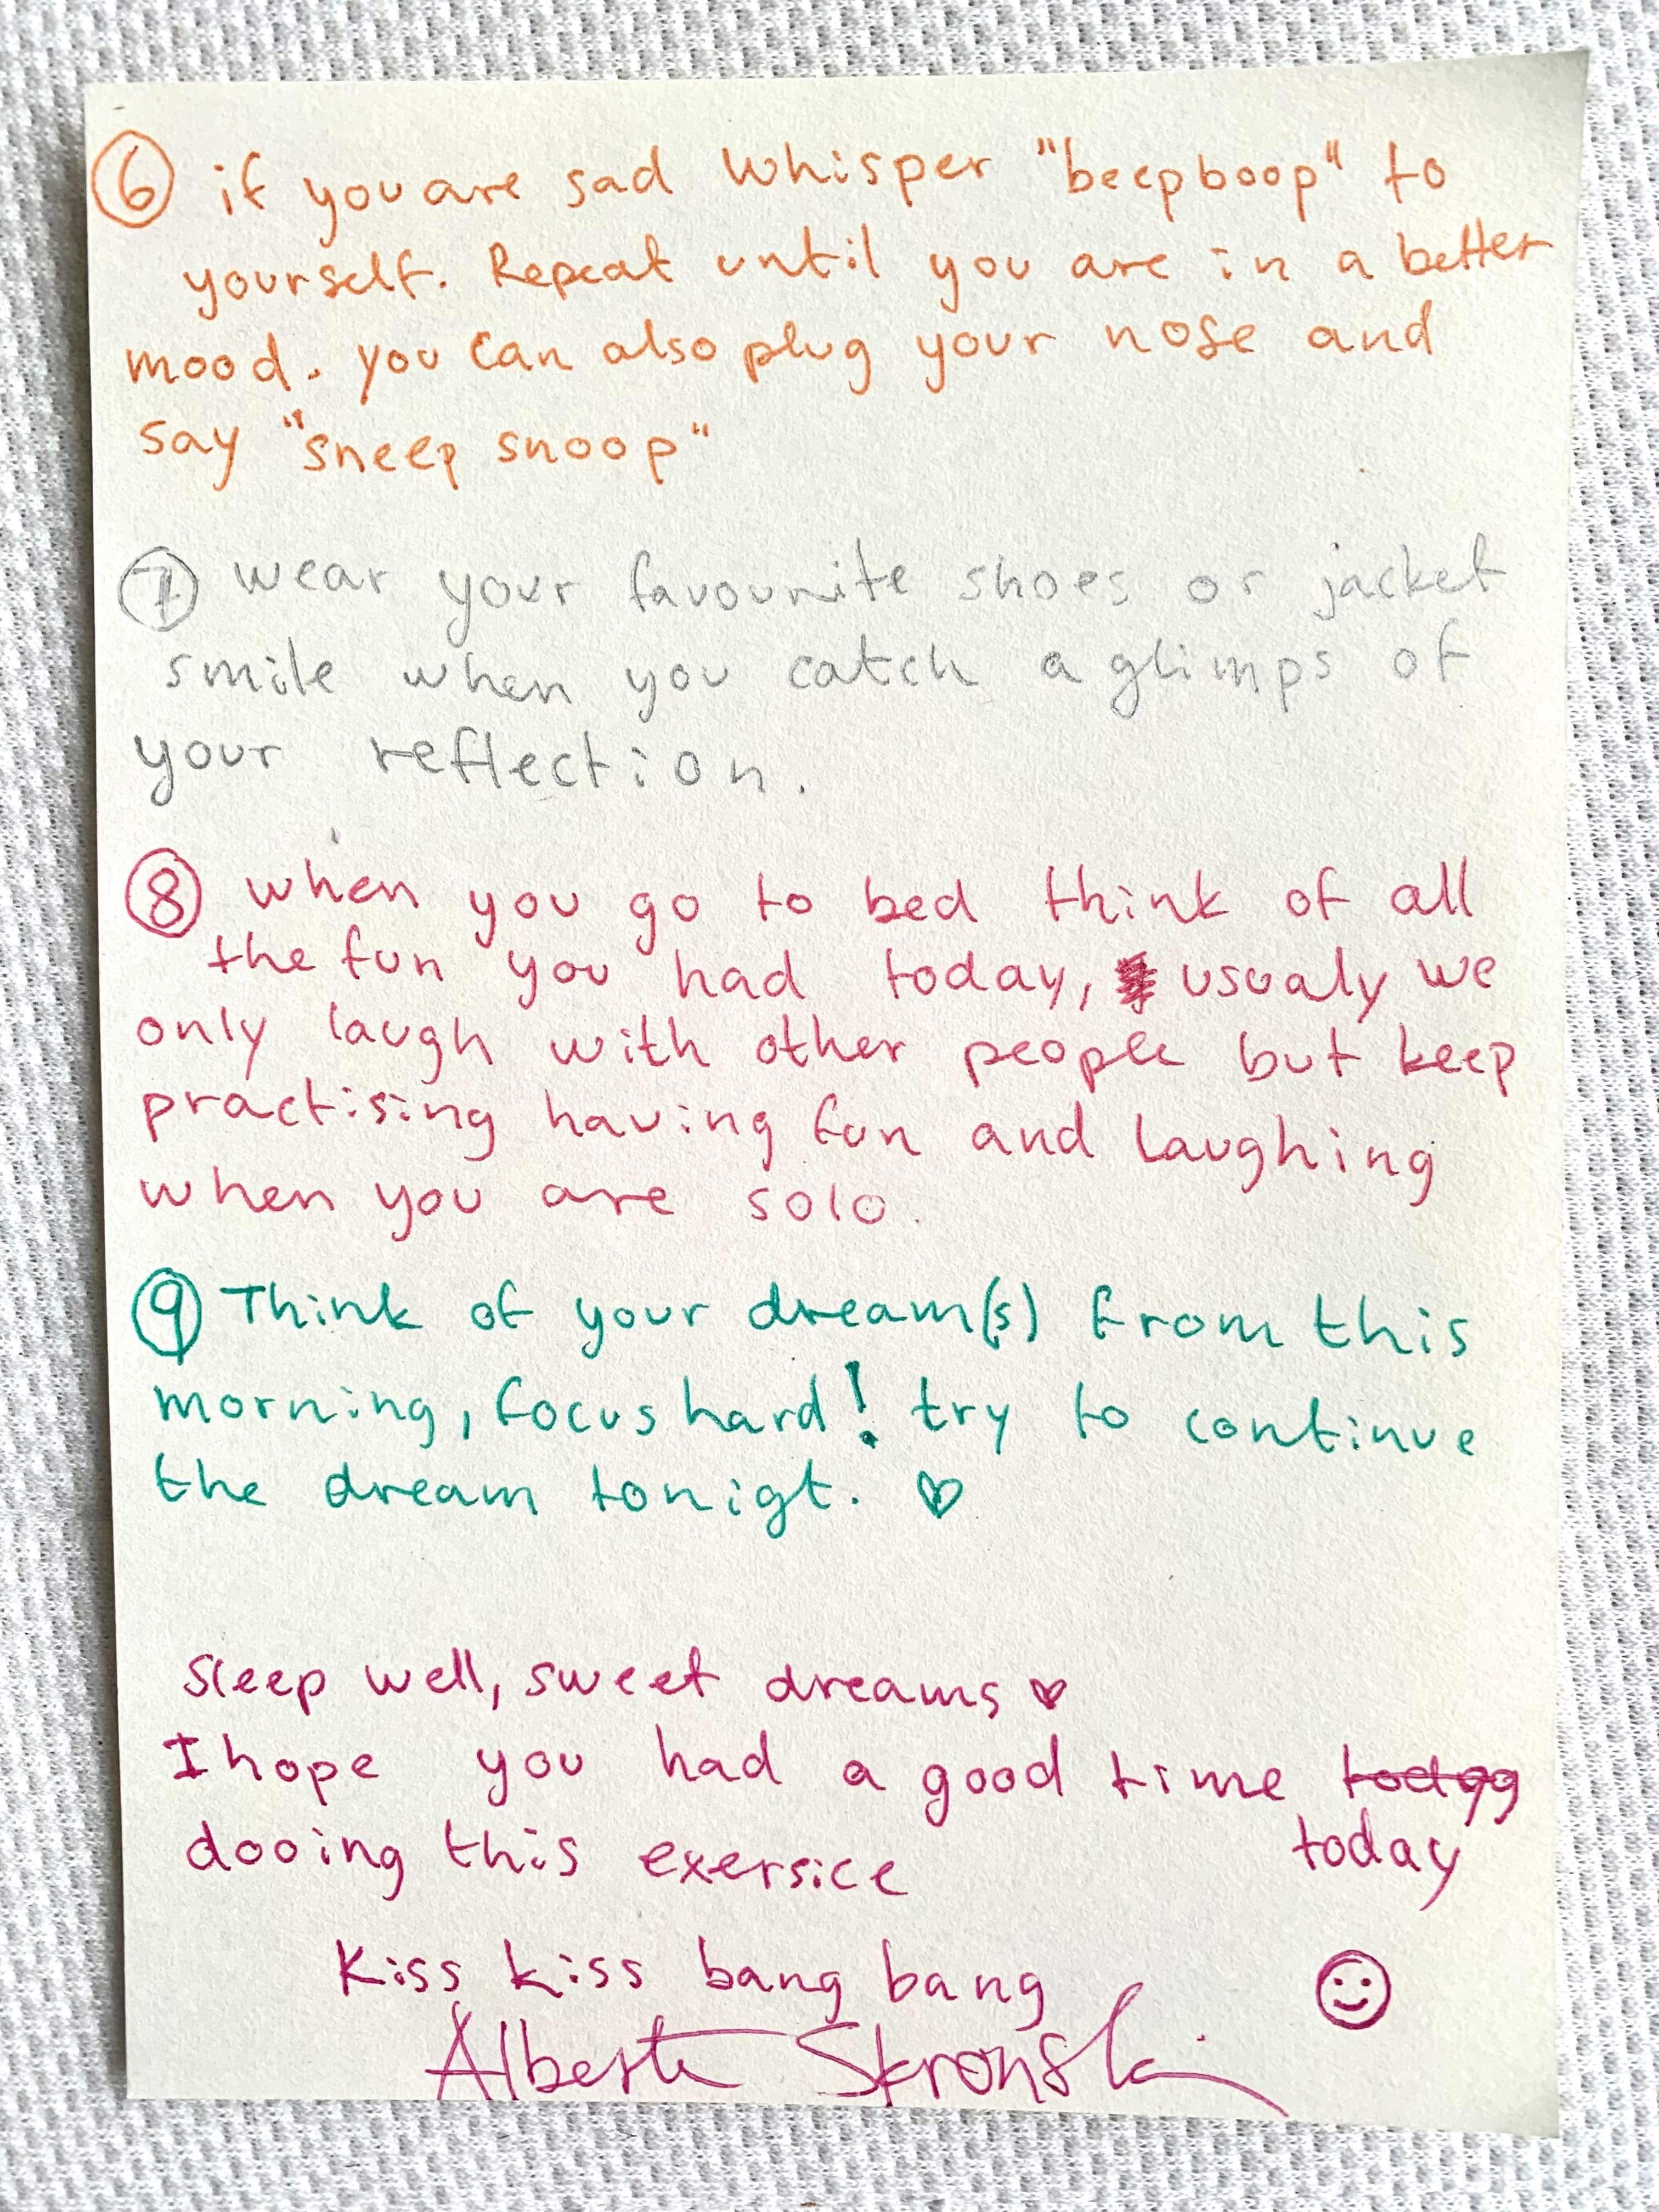 ⑥ if you are sad whisper "beepboop" to
yourself. Repeat until you are in a better
mood. you can also plug your nose and
say "sneep snoop"
⑦ wear your favourite shoes or jacket
smile when you catch a glimps of
your reflection.
⑧ when you go to bed think of all
the fun you had today, usualy we
only laugh with other people but keep
practising having fun and laughing
when you are solo.
⑨ Think of your dream(s) from this
morning, focus hard! try to continue
the dream tonigt. ♡
Sleep well, sweet dreams ♡
I hope you had a good time
today
dooing this exersice
Kiss kiss bang bang ☺
Alberte Skronski